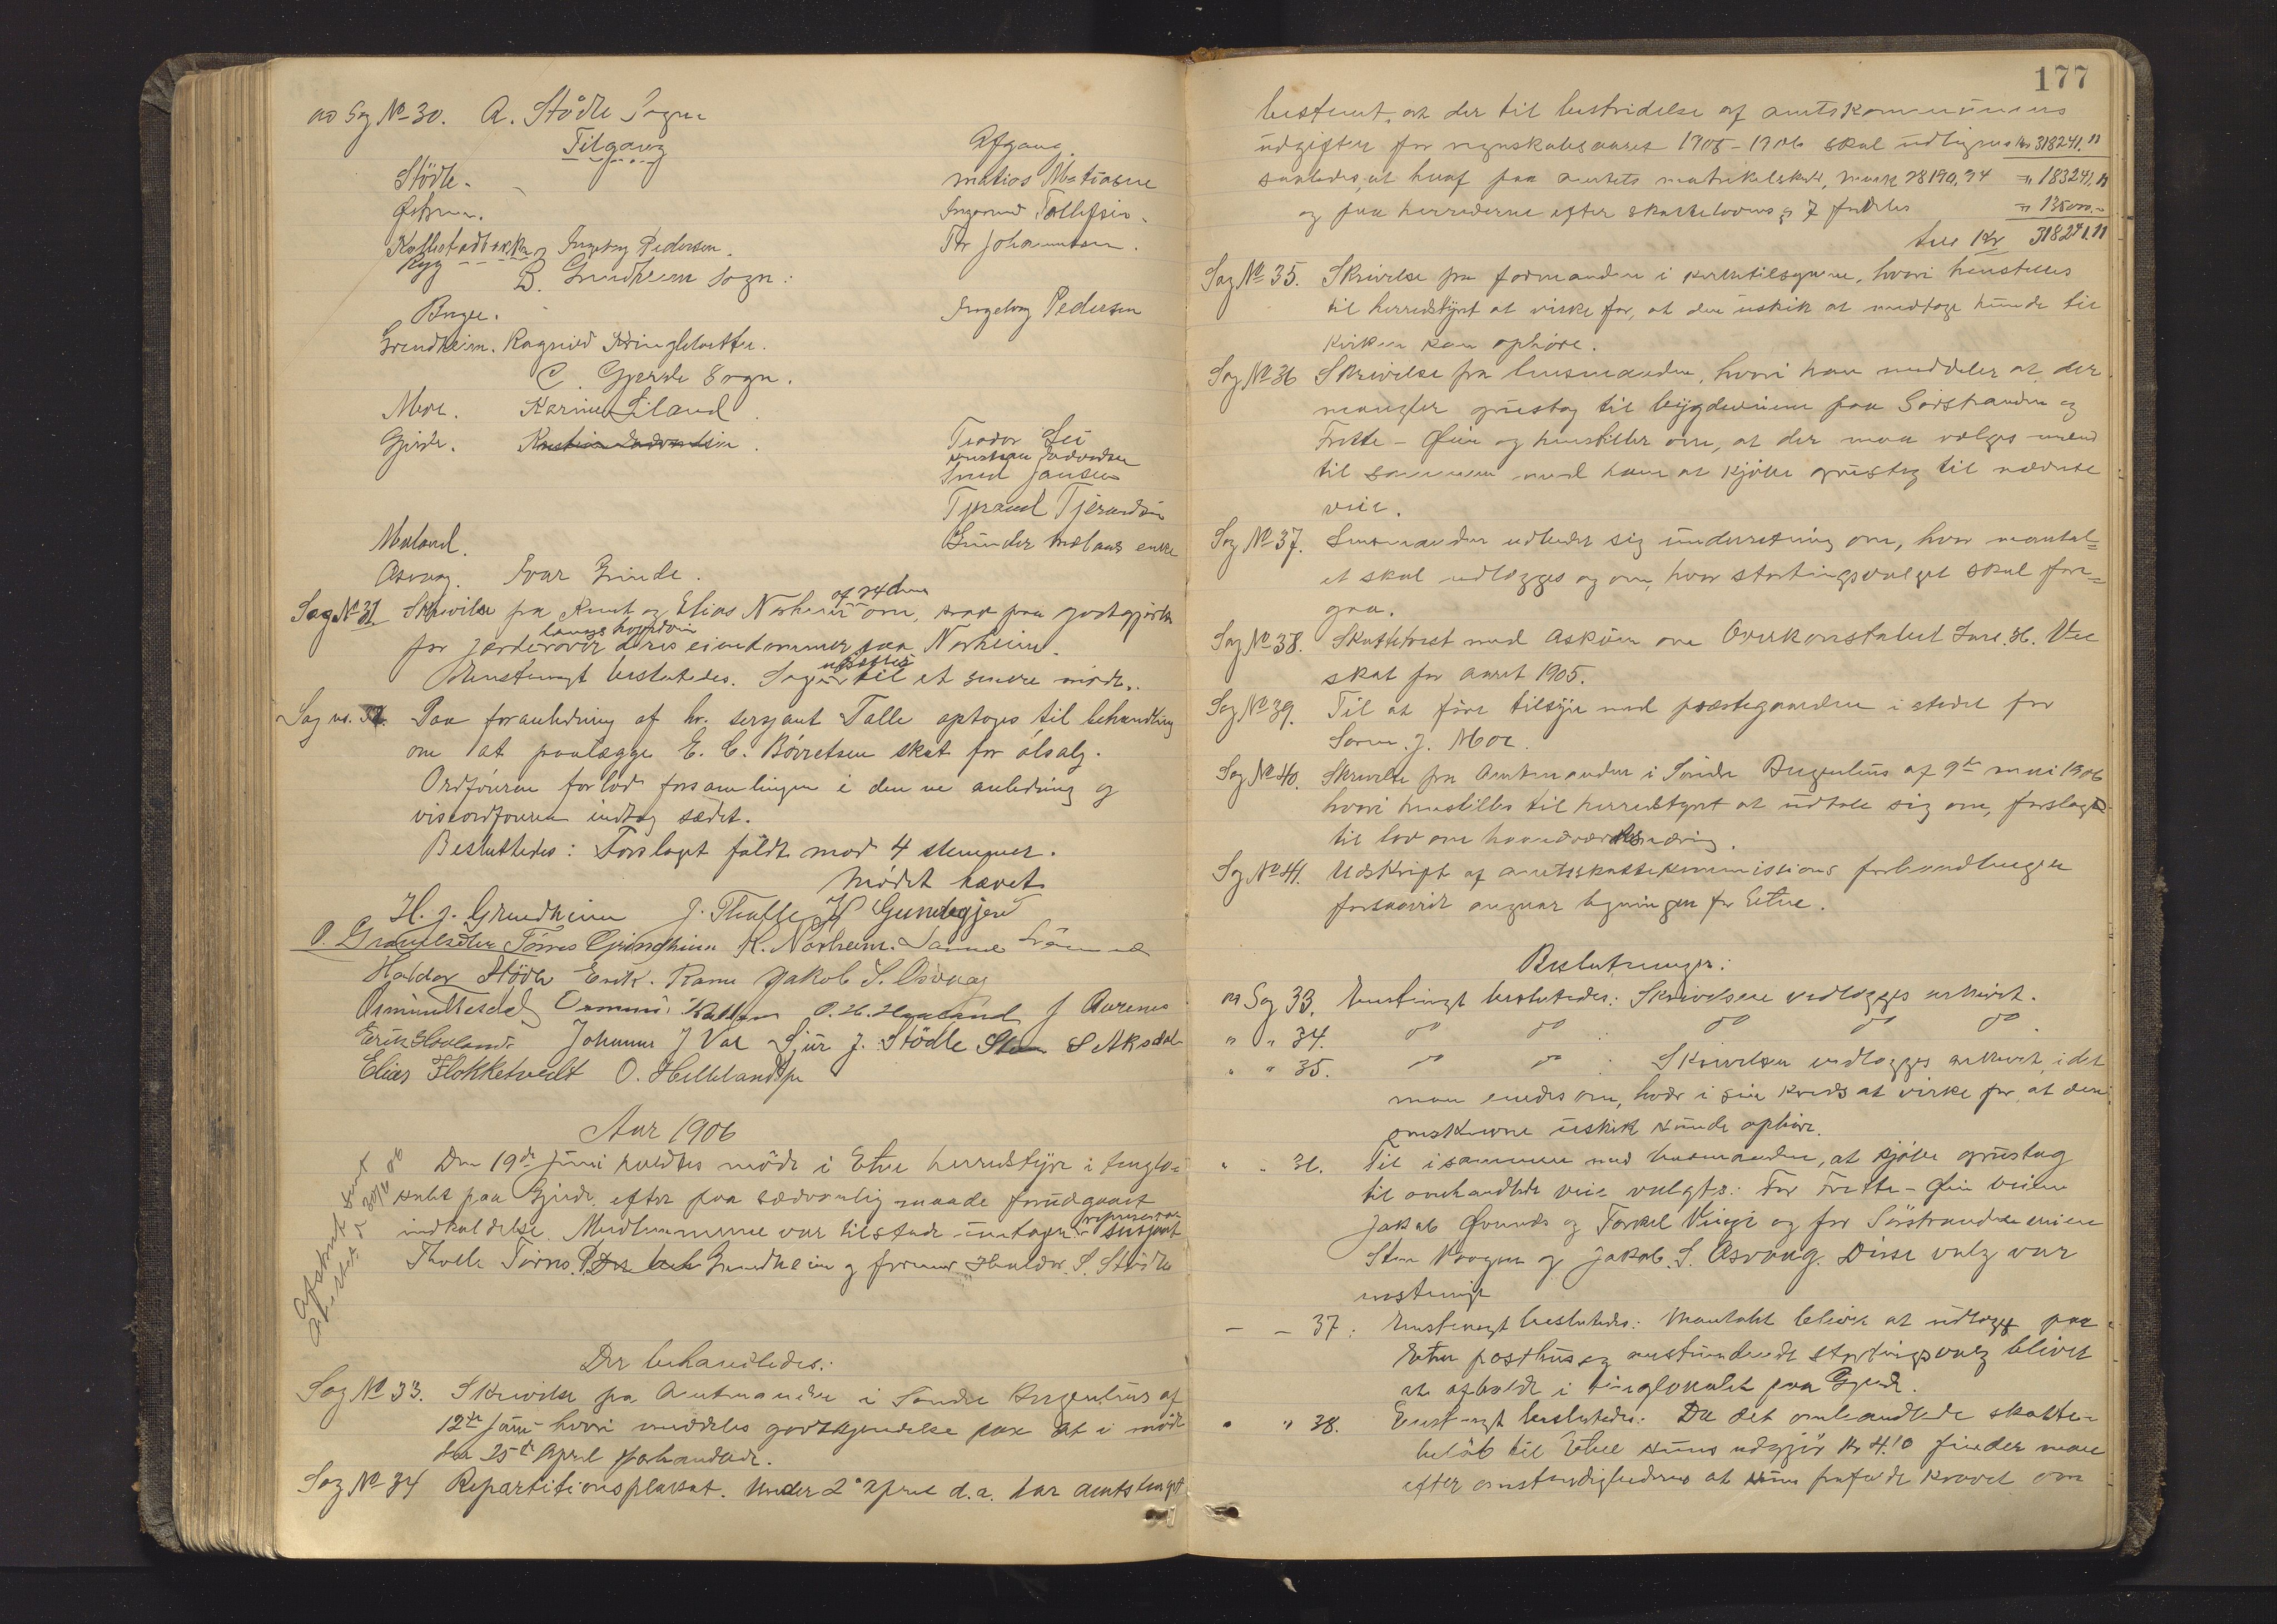 ad Sag No 30. A. Stödle Sogn
Tilgang
Afgang.
Stödle.
Matias Matiasen
Østrem.
Ingvand Tollefsen.
Kallestadbakka og Ingeborg Pedersen.
Tor Johannesen.
Ryg
B. Grindheim Sogn:
Bryer.
Ingeborg Pedersen
Grindheim. Ragnild Kringlebotten.
C. Gjerde Sogn.
Moe. Karine Eiland.
Gjerde. Kristian Endvordsen.
Teodor Lie
Kristian Endvordsen
Smed Jansen
Tjerand Tjerandsen
Mæland.
Gunder Mælands enke
Osvaag. Ivar Grinde.
Sag No 31. Skrivelse fra Knut og Elias Norheim om, svar paa godtgjörelse
af 24 dennes
for jorderover deres eiendommer paa Norheim.
langs hovedvei
Enstemmigt besluttedes. Sagen til et senere möde.
udsættes
Sag no. 32. Paa foranledning af hr. sersjant Tolle optoges til behandling
om at paalægge E. C. Börretsen skat for ølsalg.
Ordföreren forlod forsamlingen i denne anledning og
viseordföreren indtog sædet.
Besluttedes: Forslaget faldt mod 4 stemmer.
Mødet hævet
H. J. Grindheim J. Tholle H Gundegjerd
O. Grindheim Törres Grindheim K. Norheim.
Haldor Stödle Erik Rame Jakob S. Osvaag
Osmund Tesdal O. H. Haaland J Aurenes
Erik Hovland Johannes J Vae Sjur J. Stödle Sten S Aksdal
Elias Flokketvedt O. Helleland
Aar 1906
Den 19de Juni holdtes möde i Etne herredstyre i tinglo-
kalet paa Gjerde efter paa sædvanlig maade forudgaaet
indkaldelse. Medlemmerne var tilstede undtagen sersjant
repræsentan
Tholle Törres P. Grindheim og former Haldor S. Stödle
Afskrift sendt
Amtet d 30/6 06
Der behandledes:
Sag No 33. Skrivelse fra Amtmanden i Søndre Bergenhus af
12te Juni hvori meddeles godkjendelse paa det i möde
den 25de April forhandlede.
Sag No 34 Repartitionsplakat. Under 2 april d. a. har amtstinget
177
bestemt, at der til bestridelse af amtskommunens
udgifter for regnskabsaaret 1905-1906 skal udlignes kr 318241.11
saaledes, at heraf paa amtets matrikelskyld, mark 28190,94 " 183241,11
og paa herrederne efter skatteloven § 7 fordeles " 135000.-
tils Kr 318241.11
Sag No 35. Skrivelse fra formanden i kirketilsynene, hvori henstilles
til herredstyret at virke for, at den uskik at medtage hunde til
kirken kan ophöre.
Sag No 36 Skrivelse fra lensmanden, hvori han meddeler at der
mangler grustag til bygdeveiene paa Sörstranden og
Frette - Öiu og henstiller om, at der maa vælges mænd
til sammen med ham at kjöbe grustag til nævnte
veie.
Sag No 37. Lensmanden udbeder sig underretning om, hvor mantal=
et skal udlægges og om, hvor stortingsvalget skal fore=
gaa.
Sag No 38. Skattekrest med Asköen om Overkonstabel Lars. H. Vee
skat for aaret 1905.
Sag No 39. Til at före tilsyn med præstegaarden i stedet for
Soren. J. Moe.
Sag No 40. Skrivelse fra Amtmanden i Söndre Bergenhus af 9de mai 1906
hvori henstilles til herredstyret at udtale sig om, forslaget
til lov om haandværksnæring.
Sag No 41. Udskrift af amtsskattekommissions forhandlinger
forsaavidt angaar ligningen for Etne.
Beslutninger:
ad Sag 33. Enstemigt besluttedes: Skrivelsene vedlægges arkivet.
" " 34. do do : do do do.
" " 35. do do : Skrivelsen vedlægges arkivet, idet
man enedes om, hver i sin kreds at virke for at den
omskrevne uskik kunde ophöre.
" " 36. Til i sammen med lensmanden, at kjöbe grustag
til omhandlede veie valgtes: For Frette - Öiu veien
Jakob Övernes og Torkel Vinje og for Sörstrandveien
Sten Vaagen og Jakob S. Osvaag. Disse valg var
enstemigt
- - 37: Enstemigt besluttedes: Mantalet bliver at udlægge paa
Etne posthus og anstundende stortingsvalg bliver
at afholde i tinglokalet paa Gjerde.
" " 38. Enstemigt besluttedes: Da det omhandlede skatte=
belöb til Etne kun udgjör Kr 4.10 finder man
efter omstændighederne at kun frafalde kravet om